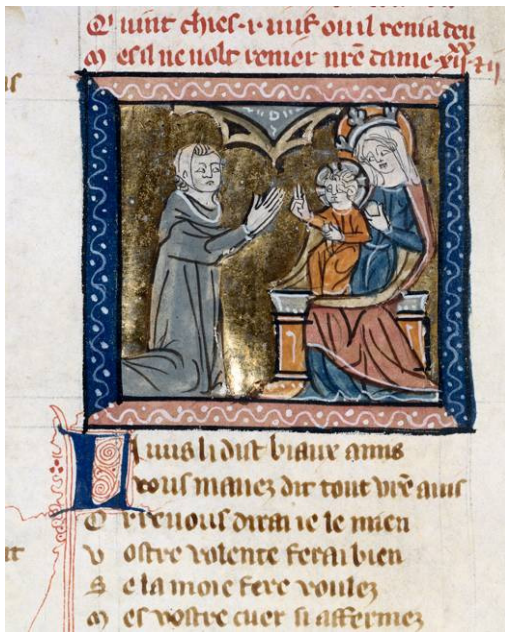 Q' vint chies .i. iuif ou il renia deu
M es il ne volt renier nrē dame
L i iuus li dist biaux amis
v ous mauez dit tout vrē auis
O r reuous dirai ie le mien
v ostre volente ferai bien
S e la moie fere voulez
M es vostre cuer si affermez